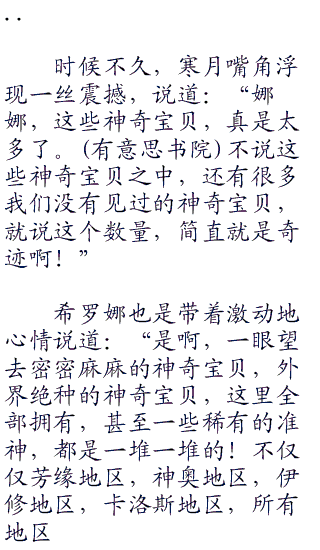 ..
时候不久，寒月嘴角浮
现一丝震撼，说道：“娜
娜，这些神奇宝贝，真是太
多了。(有意思书院)不说这
些神奇宝贝之中，还有很多
我们没有见过的神奇宝贝，
就说这个数量，简直就是奇
迹啊！”
希罗娜也是带着激动地
心情说道：“是啊，一眼望
去密密麻麻的神奇宝贝，外
界绝种的神奇宝贝，这里全
部拥有，甚至一些稀有的准
神，都是一堆一堆的！不仅
仅芳缘地区，神奥地区，伊
修地区，卡洛斯地区，所有
地区